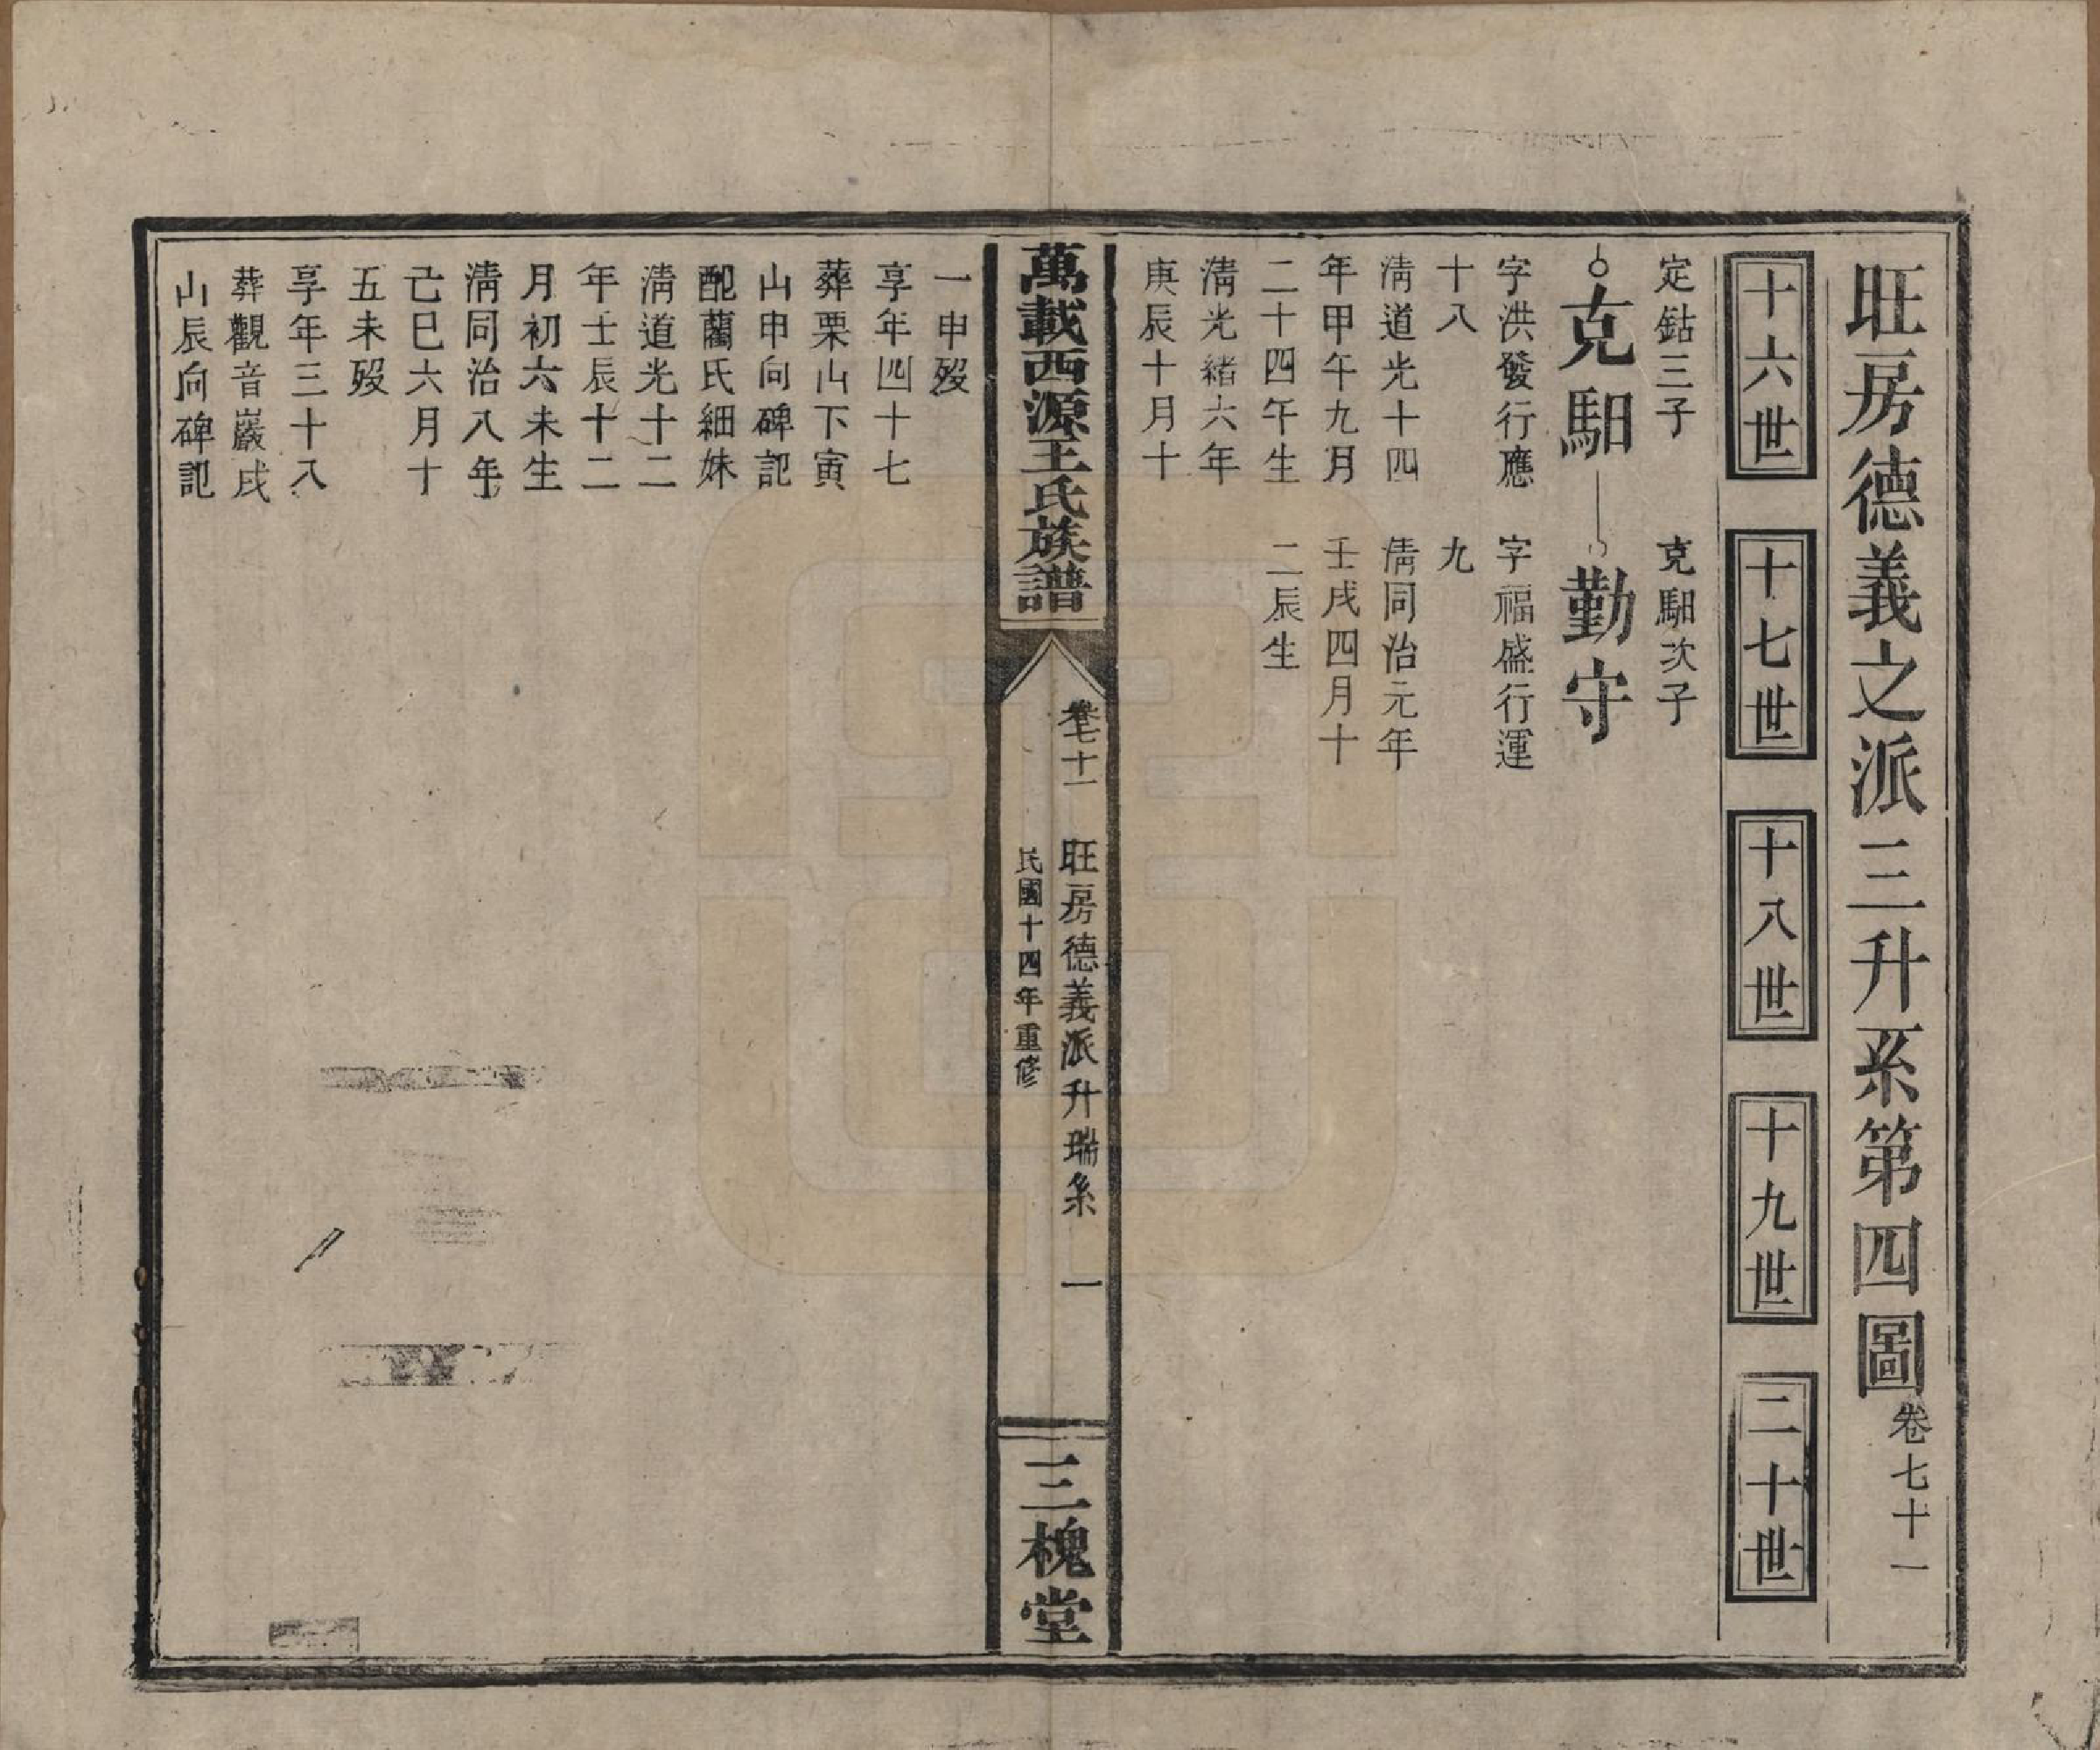 旺房德義之派三升系第四圖卷七十一
十六世
十七世
十八世
十九世
二十世
定鈷三子
克馹
字洪發行應
十八
清道光十四
年甲午九月
二十四午生
清光緒六年
庚辰十月十
克馹次子
勤守
字福盛行運
九
清同治元年
壬戌四月十
二辰生
萬載西源王氏族譜
卷七十一
旺房德義派升瑞系
一
民國十四年重修
三槐堂
一申歿
享年四十七
葬栗山下寅
山申向碑記
配藺氏細妹
清道光十二
年壬辰十二
月初六未生
清同治八年
己巳六月十
五未歿
享年三十八
葬觀音巖戌
山辰向碑記